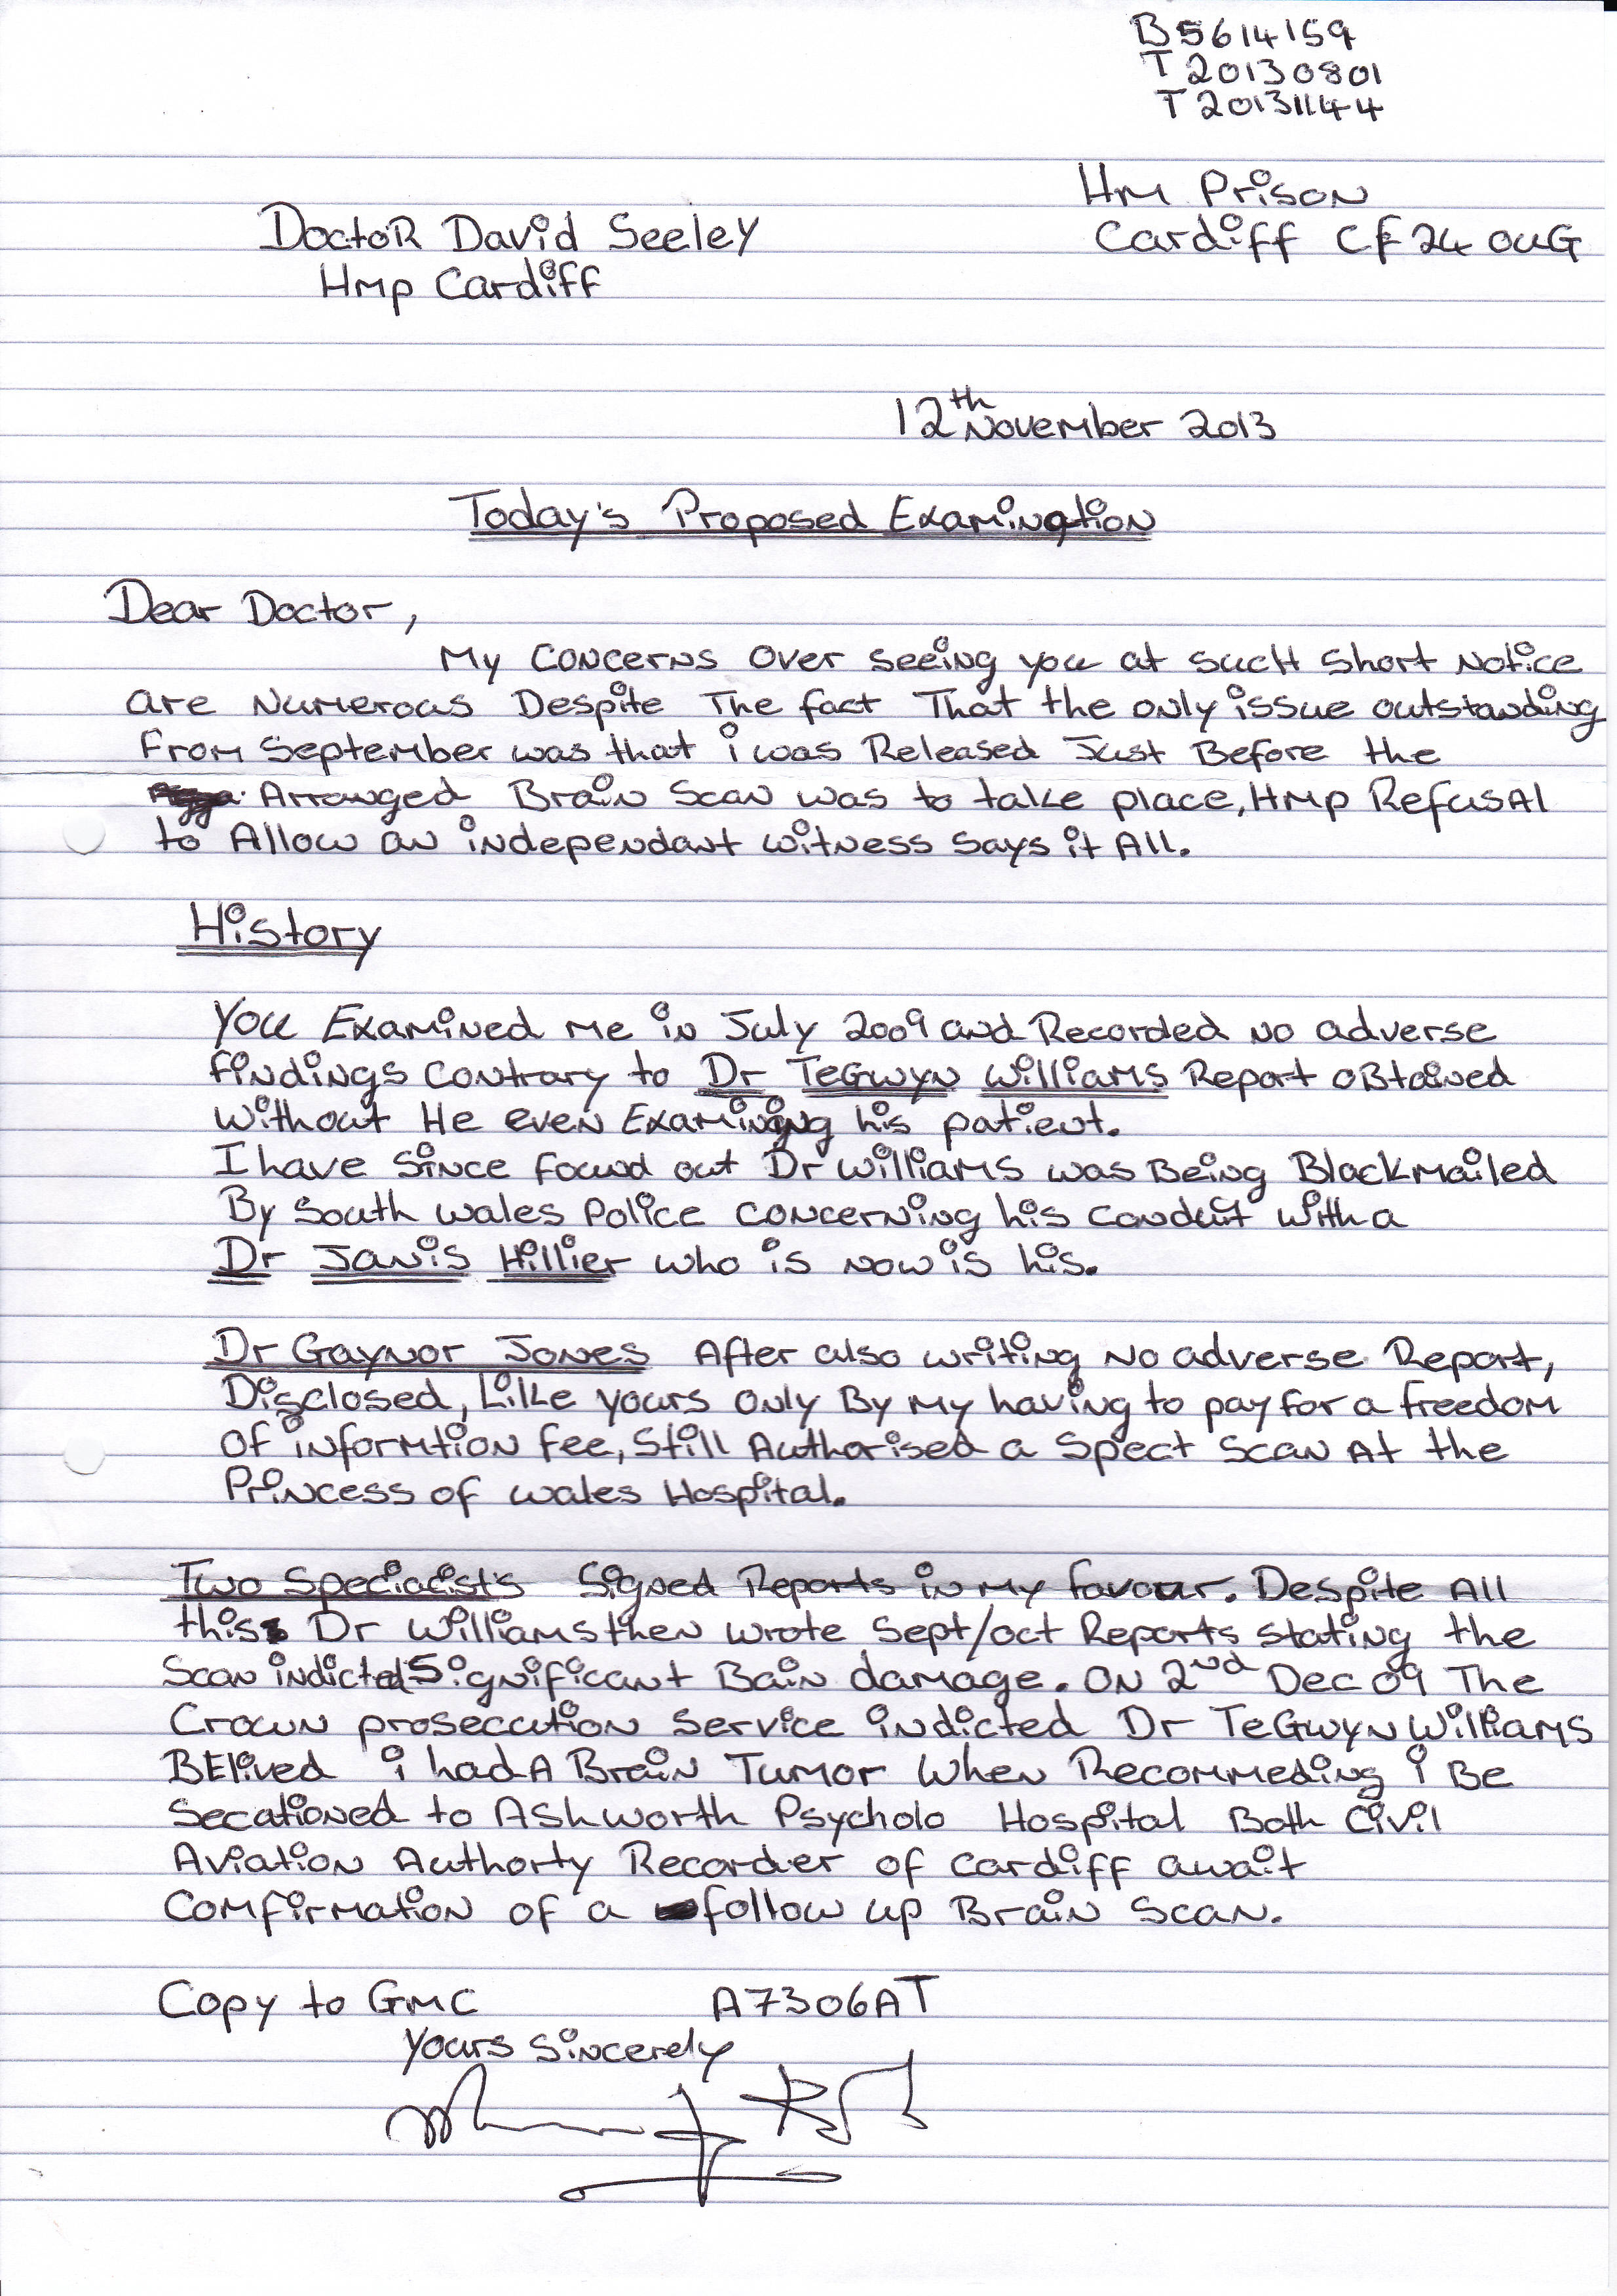 B5614159
T20130801
T20131144
HM Prison
Cardiff CF24 0UG
Doctor David Seeley
HMP Cardiff
12th November 2013
Today's Proposed Examination
Dear Doctor,
My Concerns Over seeing you at such short Notice
are Numerous Despite The fact That the only issue outstanding
From September was that i was Released Just Before the
Arranged Brain Scan was to take place, HMP Refusal
to Allow an independant witness says it All.
History
You Examined me in July 2009 and Recorded no adverse
findings contrary to Dr Tegwyn Williams Report obtained
without He even Examining his patient.
I have since found out Dr Williams was Being Blackmailed
By South Wales Police concerning his conduit with a
Dr Janis Hillier who is now is his.
Dr Gaynor Jones After also writing no adverse Report,
Disclosed, Like yours only By my having to pay for a freedom
of informtion fee, still Authorised a Spect Scan At the
Princess of Wales Hospital.
Two Specialists Signed Reports in my favour. Despite All
this Dr Williams then wrote Sept/Oct Reports stating the
Scan indicted Significant Bain damage. On 2nd Dec 09 The
Crown prosecution Service indicted Dr Tegwyn Williams
BElived i had A Brain Tumor When Recommeding i Be
Secationed to Ashworth Psycholo Hospital Both Civil
Aviation Authorty Recorder of Cardiff await
Comfirmation of a follow up Brain Scan.
Copy to GMC A7306AT
Yours Sincerely